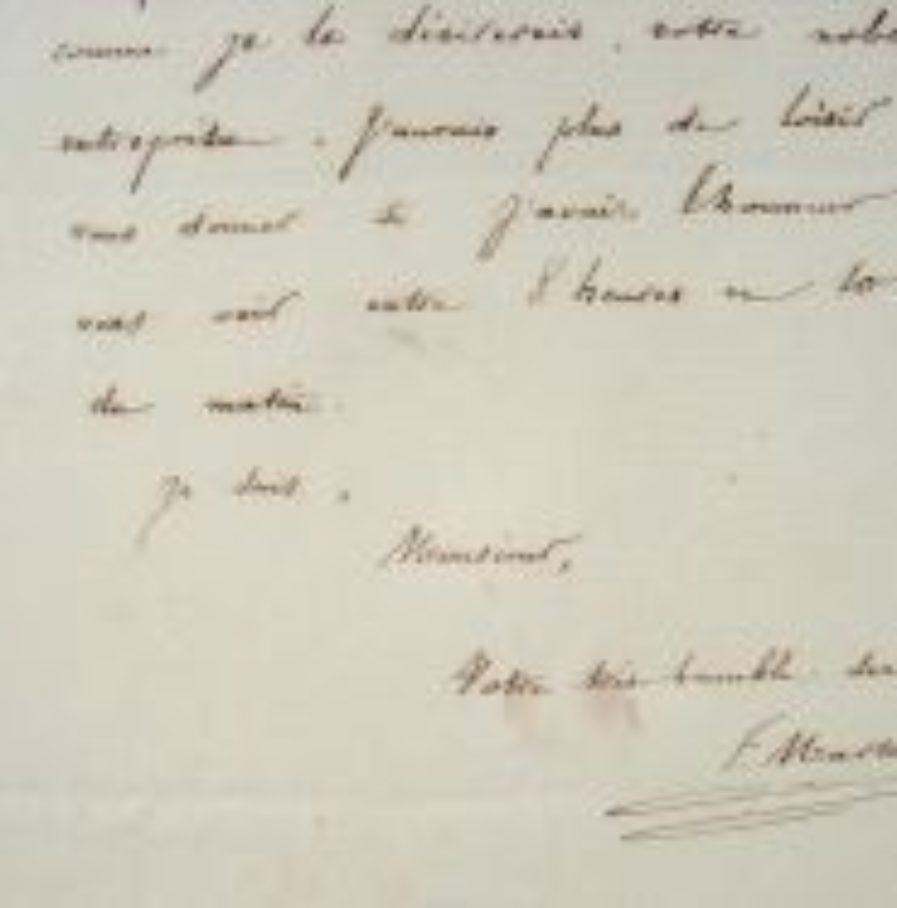 comme je le désirerais, votre noble
entreprise. J'aurais plus de loisir
vous donner si j'avais l'honneur
vous voir entre 8 heures et 10
du matin.
je suis,
Monsieur,
Votre très humble